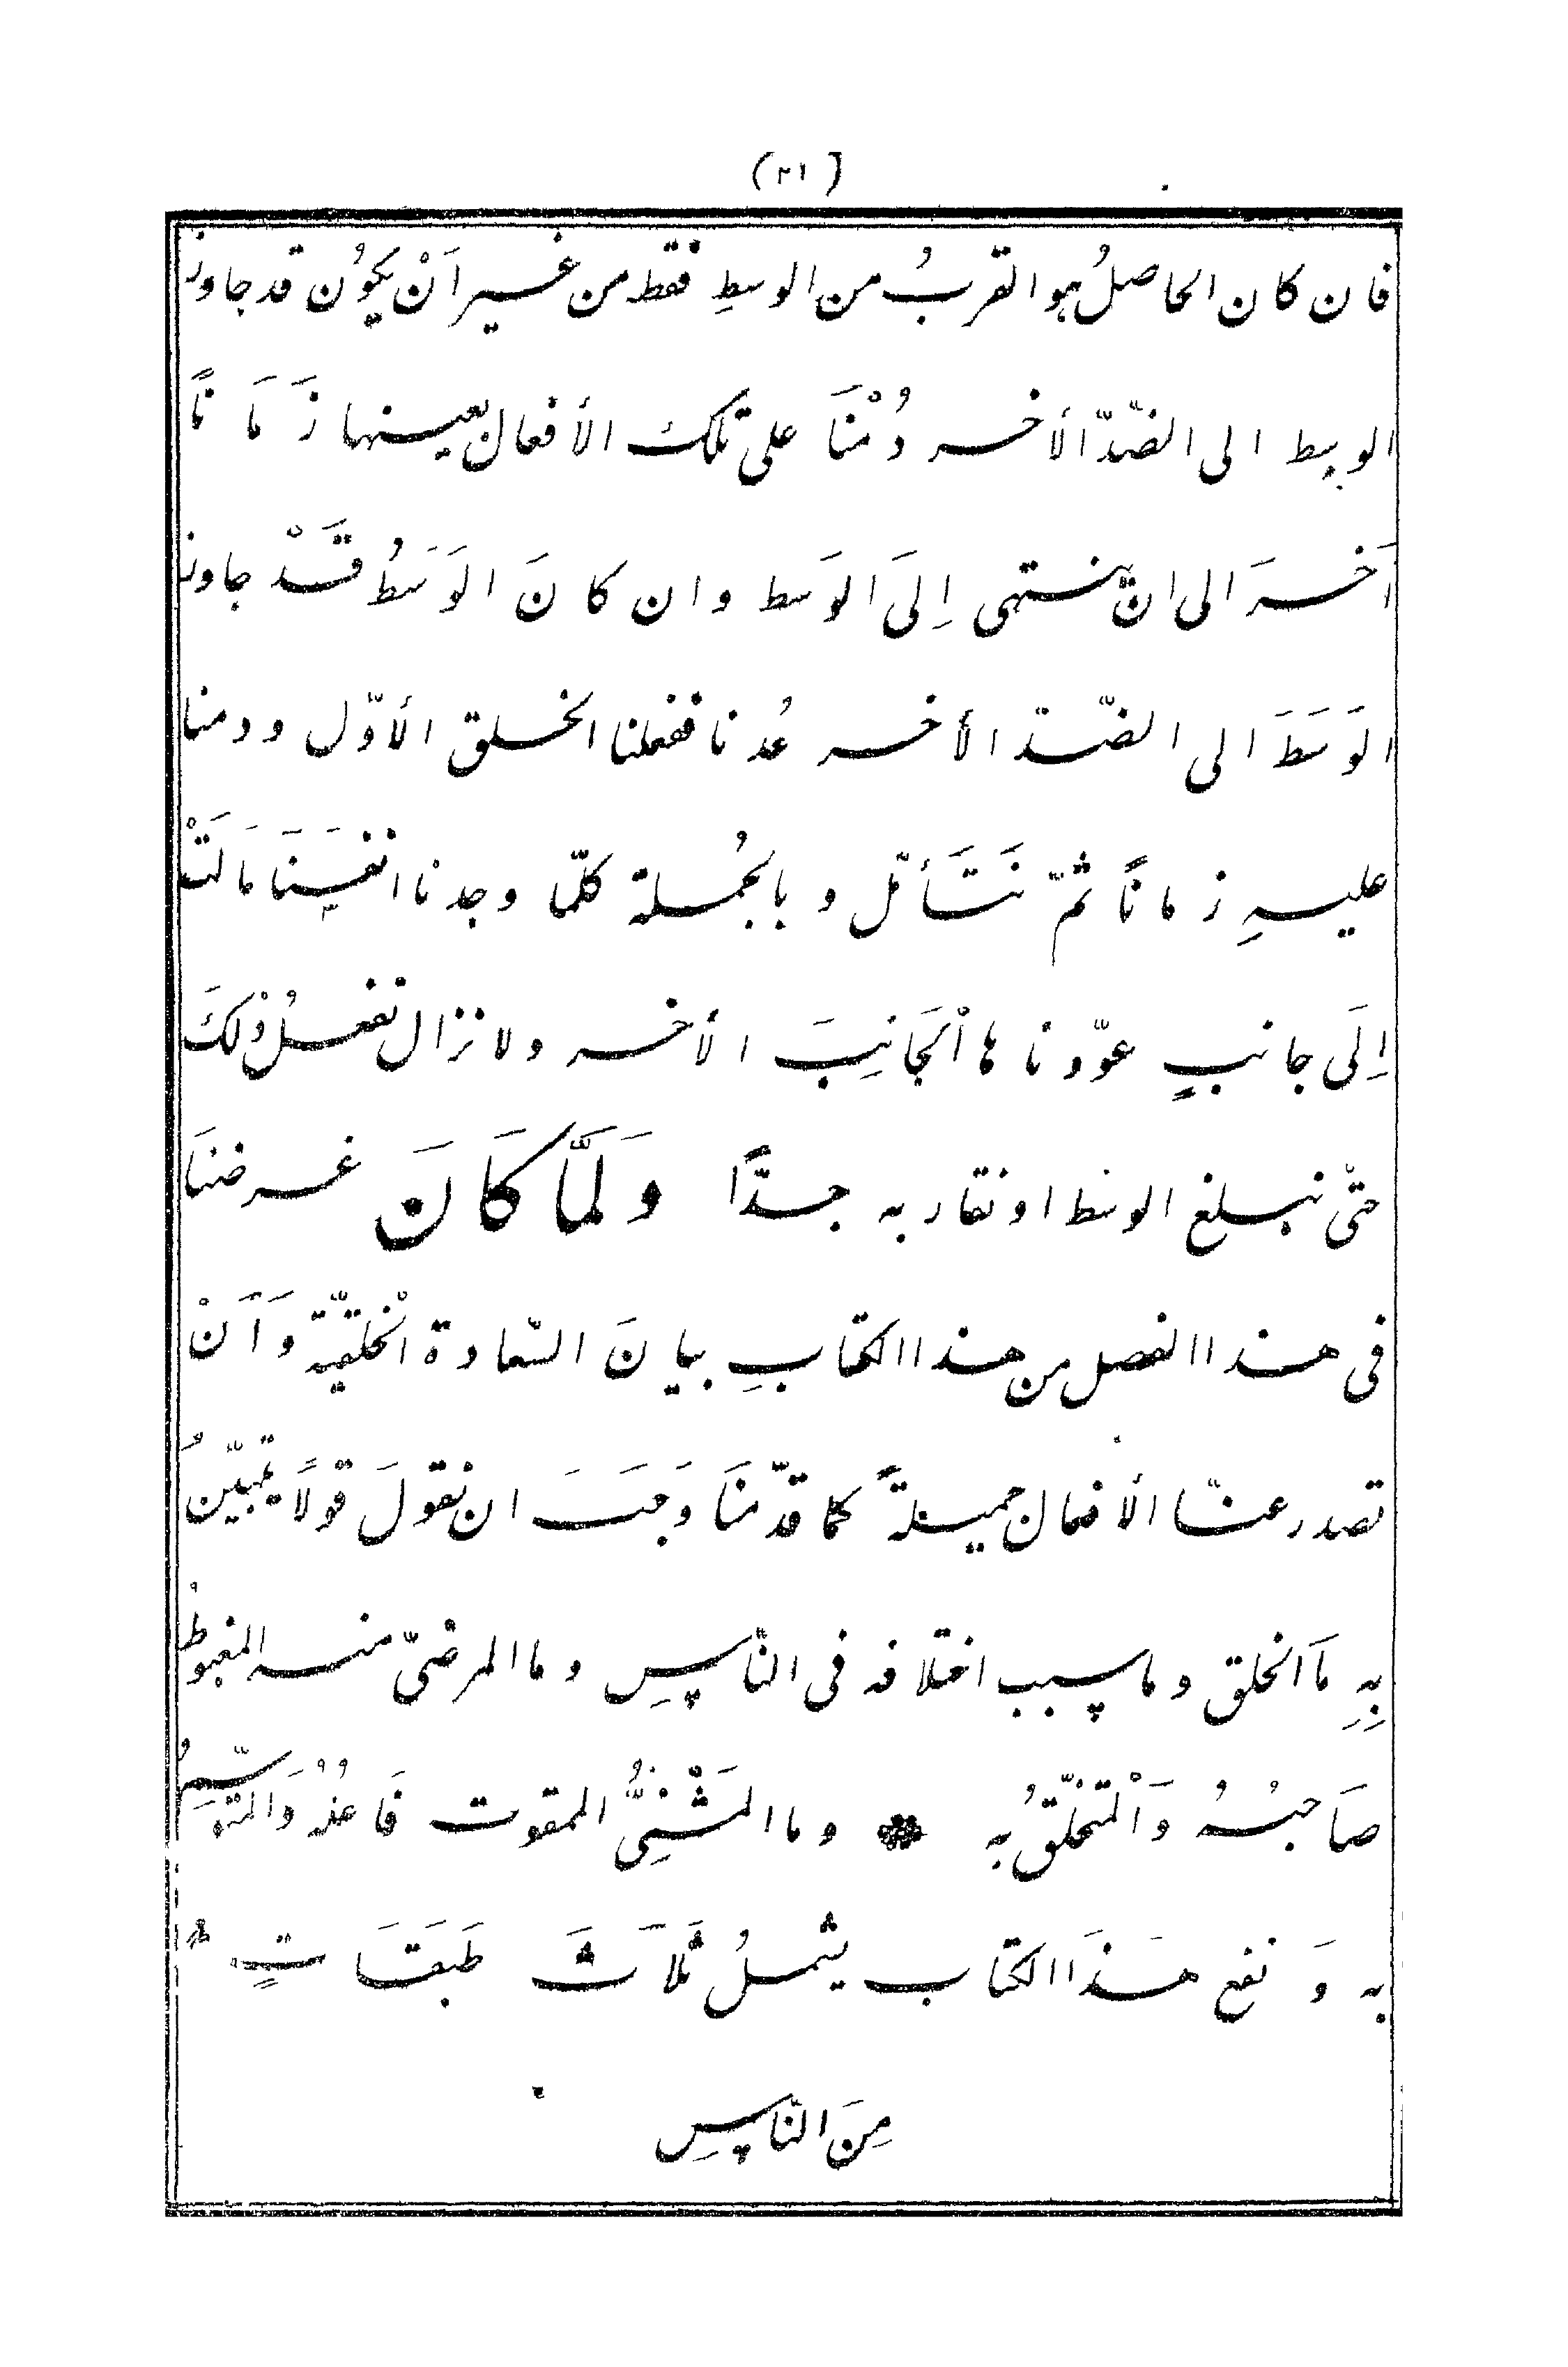 (٢١)
فان كان الحاصلُ هو القربُ من الوسطِ فقط من غير اَنْ يكوُن قد جاوز
الوسط الى الضّدّ الأخر دُمْنَا على تلك الأفعال بعينها زَمَانًا
اٰخرَ الى ان ينتهى اِلَى الوَسط وان كانَ الوَسَطُ قَدْ جاوز
الوَسَطَ الى الضّدّ الأخر عُدنا ففعلنا الخلق الأوّل ودمنا
عليهِ زمانًا ثمّ نَتَأمّل و بالجُملة كلّما وجدنا انفسَنَا مَالَتْ
اِلَى جانبٍ عوّدناها الْجَانِبَ الأخر ولا نزال نفعلُ ذٰلكَ
حتّى نبلغ الوسط او نقاربه جدًّا وَلَمَّا كَانَ غرضنَا
فى هذا الفصل من هذا الكتابِ بيانَ السّعادة الْخلقيّة وَاَنْ
تصدر عنّا الأفعال جميلةً كما قدّمنَا وَجَبَ ان نقولَ قولًا يتبيّنُ
بِهِ مَا الخلق وما سبب اختلافه فى النّاسِ وما المرضىّ منه المغبوط
صَاحبُهُ وَالْمتخلّقُ بِه * وما المَشْنِىُّ الممقوت فَاعلُهُ وَالمتوسّمُ
به وَ نفع هَذَا الكتاب يشملُ ثَلَاثَ طَبَقَاتٍ *
مِنَ النّاسِ